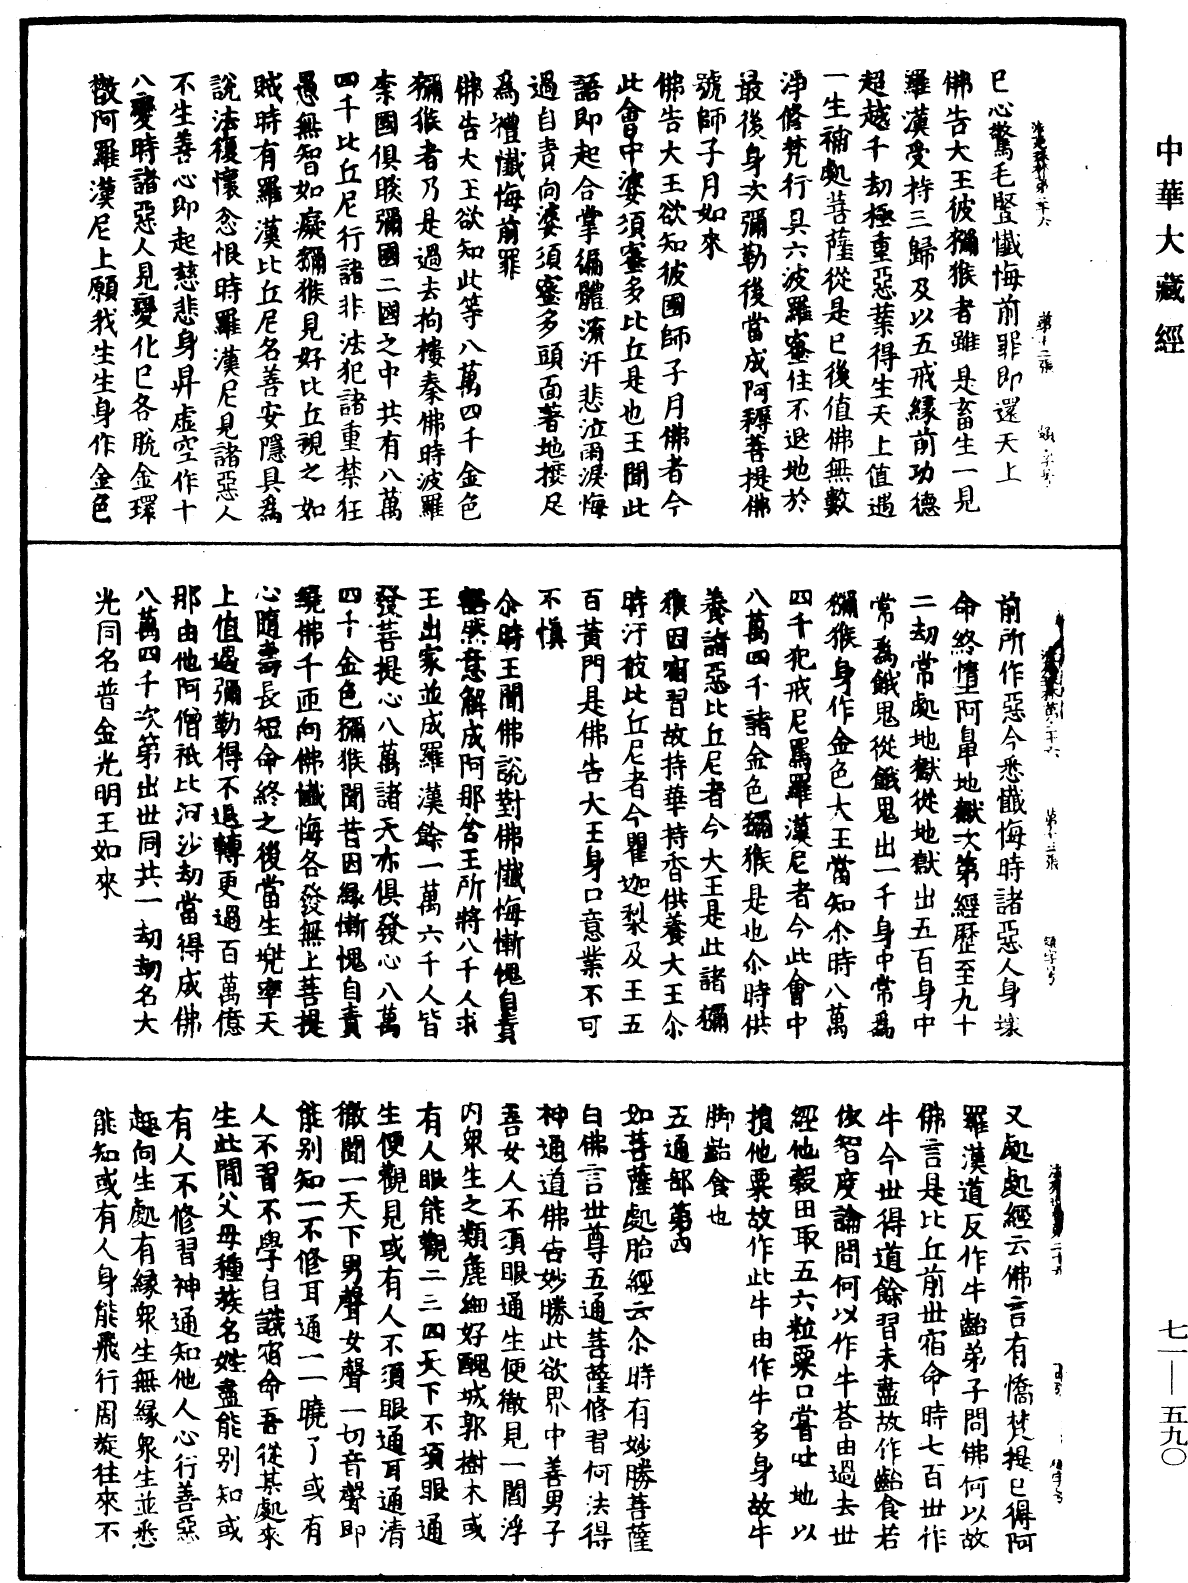 中華大藏經
巳心驚毛豎懺悔前罪即還天上
佛告大王彼獼猴者雖是畜生一見
羅漢受持三歸及以五戒緣前功德
超越千劫極重惡業得生天上值遇
一生補處菩薩從是已後值佛無數
淨脩梵行具六波羅蜜住不退地於
最後身次彌勒後當成阿耨菩提佛
號師子月如來
佛告大王欲知彼國師子月佛者今
此會中婆須蜜多比丘是也王聞此
語即起合掌徧體流汗悲泣雨淚悔
過自責向婆須蜜多頭面著地接足
為禮懺悔前罪
佛告大王欲知此等八萬四千金色
獼猴者乃是過去拘樓秦佛時波羅
柰國俱睒彌國二國之中共有八萬
四千比丘尼行諸非法犯諸重禁狂
愚無智如癡獼猴見好比丘視之如
賊時有羅漢比丘尼名善安隱具為
說法復懷忿恨時羅漢尼見諸惡人
不生善心即起慈悲身昇虛空作十
八變時諸惡人見變化已各脫金環
散阿羅漢尼上願我生生身作金色
前所作惡今悉懺悔時諸惡人身壞
命終墮阿鼻地獄次第經歷至九十
二劫常處地獄從地獄出五百身中
常為餓鬼從餓鬼出一千身中常為
獼猴身作金色大王當知尒時八萬
四千犯戒尼罵羅漢尼者今此會中
八萬四千諸金色獼猴是也尒時供
養諸惡比丘尼者今大王是此諸獼
猴因宿習故持華持香供養大王尒
時汙彼比丘尼者今瞿迦梨及王五
百黃門是佛告大王身口意業不可
不慎
尒時王聞佛說對佛懺悔慚愧自責
豁然意解成阿那含王所將八千人求
王出家並成羅漢餘一萬六千人皆
發菩提心八萬諸天亦俱發心八萬
四千金色獼猴聞昔因緣慚愧自責
繞佛千匝向佛懺悔各發無上菩提
心隨壽長短命終之後當生兜率天
上值遇彌勒得不退轉更過百萬億
那由他阿僧祇比河沙劫當得成佛
八萬四千次第出世同共一劫劫名大
光同名普金光明王如來
又處處經云佛言有憍梵提已得阿
羅漢道反作牛齝弟子問佛何以故
佛言是比丘前世宿命時七百世作
牛今世得道餘習未盡故作齝食若
依智度論問何以作牛荅由過去世
經他穀田取五六粒粟口嘗吐地以
損他粟故作此牛由作牛多身故牛
脚齝食也
五通部第四
如菩薩處胎經云尒時有妙勝菩薩
白佛言世尊五通菩薩修習何法得
神通道佛告妙勝此欲界中善男子
善女人不須眼通生便徹見一閻浮
内眾生之類麁細好醜城郭樹木或
有人眼能觀二三四天下不須眼通
生便觀見或有人不須眼通耳通清
徹聞一天下男聲女聲一切音聲即
能別知一不修耳通一一曉了或有
人不習不學自識宿命吾從某處來
生此間父母種族名姓盡能別知或
有人不修習神通知他人心行善惡
趣向生處有緣眾生無緣眾生並悉
能知或有人身能飛行周旋往來不
七一—五九〇